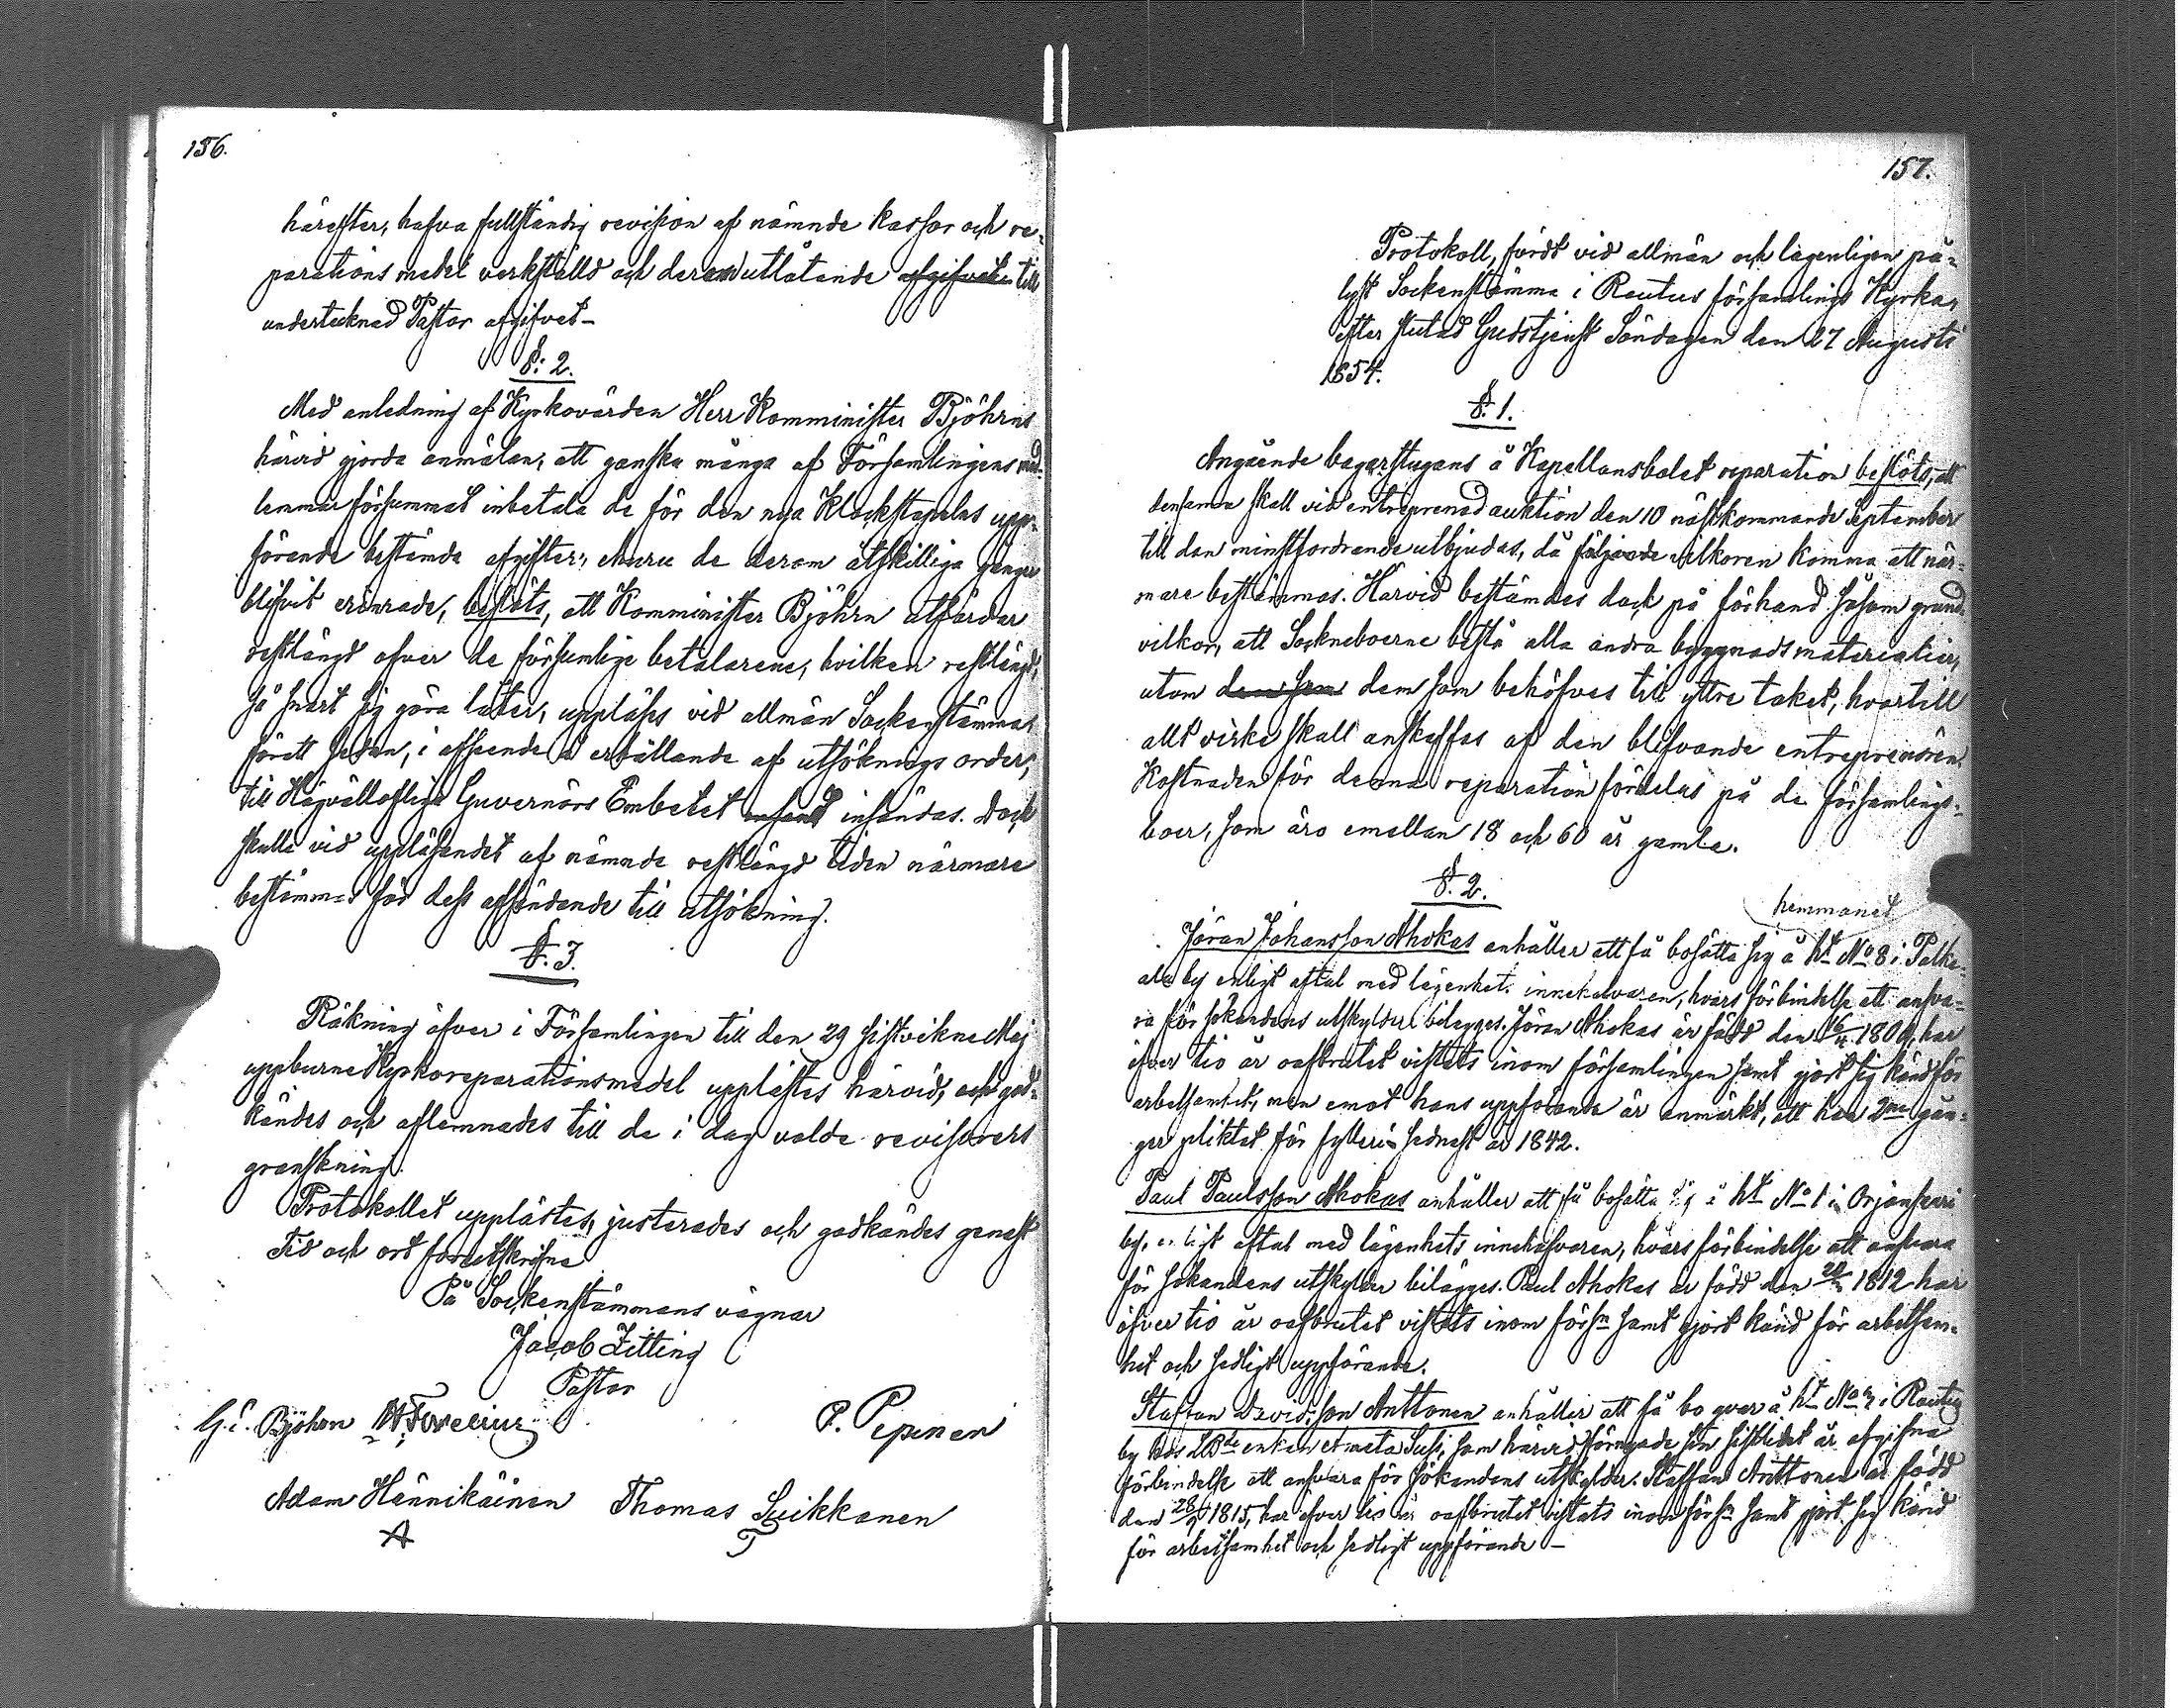 156.
härefter, hafva fullständig revision af nämnde kassor och re-
parations medel verkställd och derom utlåtande afgifvaka till
undertecknad Pastor afgifvet-
§. 2.
Med anledning af Kyrkovärden Herr Komminister Björhns
härvid gjorda anmälan, att ganska många af Församlingens med-
lemmar försummat inbetala de för den nya Klockstapelns upp-
förande bestämda afgifter, ehuru de derom åtskilliga gånger
blifvit erinrade, beslöts, att Komminister Björhn utfärdar
restlängd öfver de försumlige betalarene, hvilken restlängd,
så snart sig göra låter, uppläses vid allmän Sockenstämma,
förrtt sedan, i afseende å erhållande af utsöknings order,
till Högvälloflige Guvernörs Embetet insändas. Dock
skulle vid uppläsandet af nämnde restlängd tiden närmare
bestämmas för dess afsändande till utsökning.
§. 3.
Räkning öfver i Församlingen till den 29 sistvikne Maj
uppburne Kyrkoreparationsmedel upplästes härvid, och god-
kändes och aflemnades till de i dag valde revisorers
granskning.
Protokollet upplästes, justerades och godkändes genast
Tid och ort förutskrifne
På Sockenstämmans vägnar
Jacob Zitting
Pastor
G. E. Björhn P. Pepinen
Adam Hännikäinen Thomas Suikkanen
A T
157.
Protokoll, fördt vid allmän och lagenligen på-
lyst Sockenstämma i Rautus församlings Kyrka,
efter slutad Gudstjenst Söndagen den 27 Augusti
1854.
§. 1.
Angående bagarstugans å Kapellansbolet reparation beslöts, att
densamma skall vid entreprenad auktion den 10 nästkommande September
till den minstfordrande utbjudas, då följande vilkoren komma att när-
mare bestämmas. Härvid bestämdes dock på förhand såsom grund-
vilkor, att Sockneboerne bestå alla andra byggnadsmaterialier,
utom den som dem som behöfves till yttre taket, hvartill
allt virke skall anskaffas af den blifvande entreprenören.
Kostnaden för denna reparation fördelas på de församlings-
boer, som äro emellan 18 och 60 år gamla.
§. 2.
hemmanet
Jöran Johansson Ahokas anhåller att få bosätta sig å ht No 8 i Palke-
ala by enligt aftal med lägenhet. innehafvaren, hvars förbindelse att ansva-
ra för sökandens utskylder bilägges. Jöran Ahokas är född den 1809, har
öfver tio år oafbrutet vistats inom församlingen samt gjort sig känd för
arbetsamhet, men emot hans uppförande är anmärkt, att han 2ne gån-
ger pliktat för fylleri sednast år 1842.
Paul Paulsson Ahokas anhåller att få bosätta sig å ht No 1 i Orjansaari
by, enligt aftal med lägenhets innehafvaren, hvars förbindelse att ansvara
för sökandens utskylder bilägges. Paul Ahokas är född den 1812 har
öfver tio år oafbrutet vistats inom förs:n samt gjort känd för arbetsam-
het och sedligt uppförande.
Staffan Davidsson Anttonen anhåller att få bo qvar å ht No i Rautus
by hos enkan Susi, som härvid förnyade sin sistlidet år afgifna
förbindelse att ansvara för sökandens utskylder. Staffan Anttonen är född
den 28/9 1815, har öfver tio år oafbrutet vistats inom förs:n samt gjort sig känd
för arbetsamhet och sedligt uppförande -